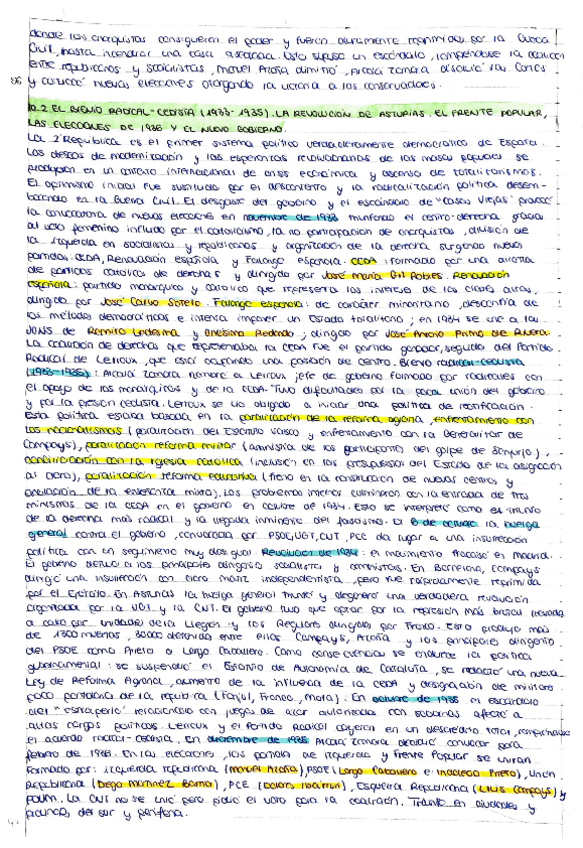 donde los anarquistas consiguieron el poder y fueron duramente reprimidos por la Guardia
Civil, hasta incendrar una casa asediada. Esto supuso un escándalo, rompiéndose la coalición
entre republicanos y socialistas, Manuel Azaña dimitió, Alcalá Zamora disolvió las Cortes
y convocó nuevas elecciones otorgando la victoria a los conservadores.
10.2 EL BIENIO RADICAL-CEDISTA (1933-1935). LA REVOLUCIÓN DE ASTURIAS. EL FRENTE POPULAR,
LAS ELECCIONES DE 1936 Y EL NUEVO GOBIERNO.
La 2ª República es el primer sistema político verdaderamente democrático de España.
Los deseos de modernización y las esperanzas revolucionarias de las masas populares se
produjeron en un contexto internacional de crisis económica y ascenso de totalitarismos.
El optimismo inicial fue sustituido por el descontento y la radicalización política desem-
bocando en la Guerra Civil. El desgaste del gobierno y el escándalo de "Casas Viejas" provocó
la convocatoria de nuevas elecciones en noviembre de 1933 triunfando el centro-derecha gracias
al voto femenino influido por el catolicismo, la no participación de anarquistas, división de
la izquierda en socialistas y republicanos y organización de la derecha surgiendo nuevos
partidos: CEDA, Renovación española y Falange española. CEDA: formado por una alianza
de partidos católicos de derechas y dirigido por José María Gil Robles. Renovación
española: partido monárquico y católico que representa los intereses de las clases altas,
dirigido por José Calvo Sotelo. Falange española: de carácter minoritario, desconfía de
los métodos democráticos e intenta imponer un Estado totalitario; en 1934 se une a las
JONS de Ramiro Ledesma y Onésimo Redondo; dirigido por José Antonio Primo de Rivera.
La coalición de derechas que representaba la CEDA fue el partido ganador, seguido del Partido
Radical de Lerroux, que está ocupando una posición de centro. Bienio radical-cedista
(1933-1935): Alcalá Zamora nombró a Lerroux jefe de gobierno formado por radicales con
el apoyo de los monárquicos y de la CEDA. Tuvo dificultades por la poca unión del gobierno
y por la presión cedista. Lerroux se vio obligado a iniciar una política de rectificación.
Esta política estaba basada en la paralización de la reforma agraria, enfrentamiento con
los nacionalismos (paralización del Estatuto Vasco y enfrentamiento con la Generalitat de
Companys), paralización reforma militar (amnistía de los participantes del golpe de Sanjurjo),
conciliación con la Iglesia católica (inclusión en los presupuestos del Estado de la asignación
al clero), paralización reforma educativa (freno en la construcción de nuevos centros y
anulación de la enseñanza mixta). Los problemas internos culminaron con la entrada de tres
ministros de la CEDA en el gobierno en octubre de 1934. Esto se interpretó como el triunfo
de la derecha más radical y la llegada inminente del fascismo. El 6 de octubre la huelga
general contra el gobierno, convocada por PSOE, UGT, CNT, PCE da lugar a una insurrección
política con un seguimiento muy desigual. Revolución de 1934: el movimiento fracasó en Madrid.
El gobierno detuvo a los principales dirigentes socialistas y comunistas. En Barcelona, Companys
dirigió una insurrección con claro matiz independentista, pero fue rápidamente reprimida
por el Ejército. En Asturias la huelga general triunfó y degeneró una verdadera revolución
organizada por la UGT y la CNT. El gobierno tuvo que optar por la represión más brutal llevada
a cabo por unidades de la Legión y los Regulares dirigidos por Franco. Esto produjo más
de 1300 muertos, 30000 detenidos entre ellos Companys, Azaña y los principales dirigentes
del PSOE como Prieto o Largo Caballero. Como consecuencias se endurece la política
gubernamental: se suspendió el Estatuto de Autonomía de Cataluña, se redactó una nueva
Ley de Reforma Agraria, aumento de la influencia de la CEDA y designación de militares
poco partidarios de la república (Fanjul, Franco, Mola). En octubre de 1935 el escándalo
del "estraperlo" relacionado con juegos de azar autorizados con sobornos afectó a
altos cargos políticos. Lerroux y el Partido Radical cayeron en un descrédito total, rompiéndose
el acuerdo radical-cedista. En diciembre de 1935 Alcalá Zamora decidió convocar para
febrero de 1936. En las elecciones, los partidos de izquierda y Frente Popular se unieron
formado por: izquierda republicana (Manuel Azaña), PSOE (Largo Caballero e Indalecio Prieto), Unión
Republicana (Diego Martínez Barrio), PCE (Dolores Ibárruri), Esquerra Republicana (Lluís Companys) y
POUM. La CNT no se unió pero pidió el voto para la coalición. Triunfó en ciudades y
provincias, del sur y periferia.